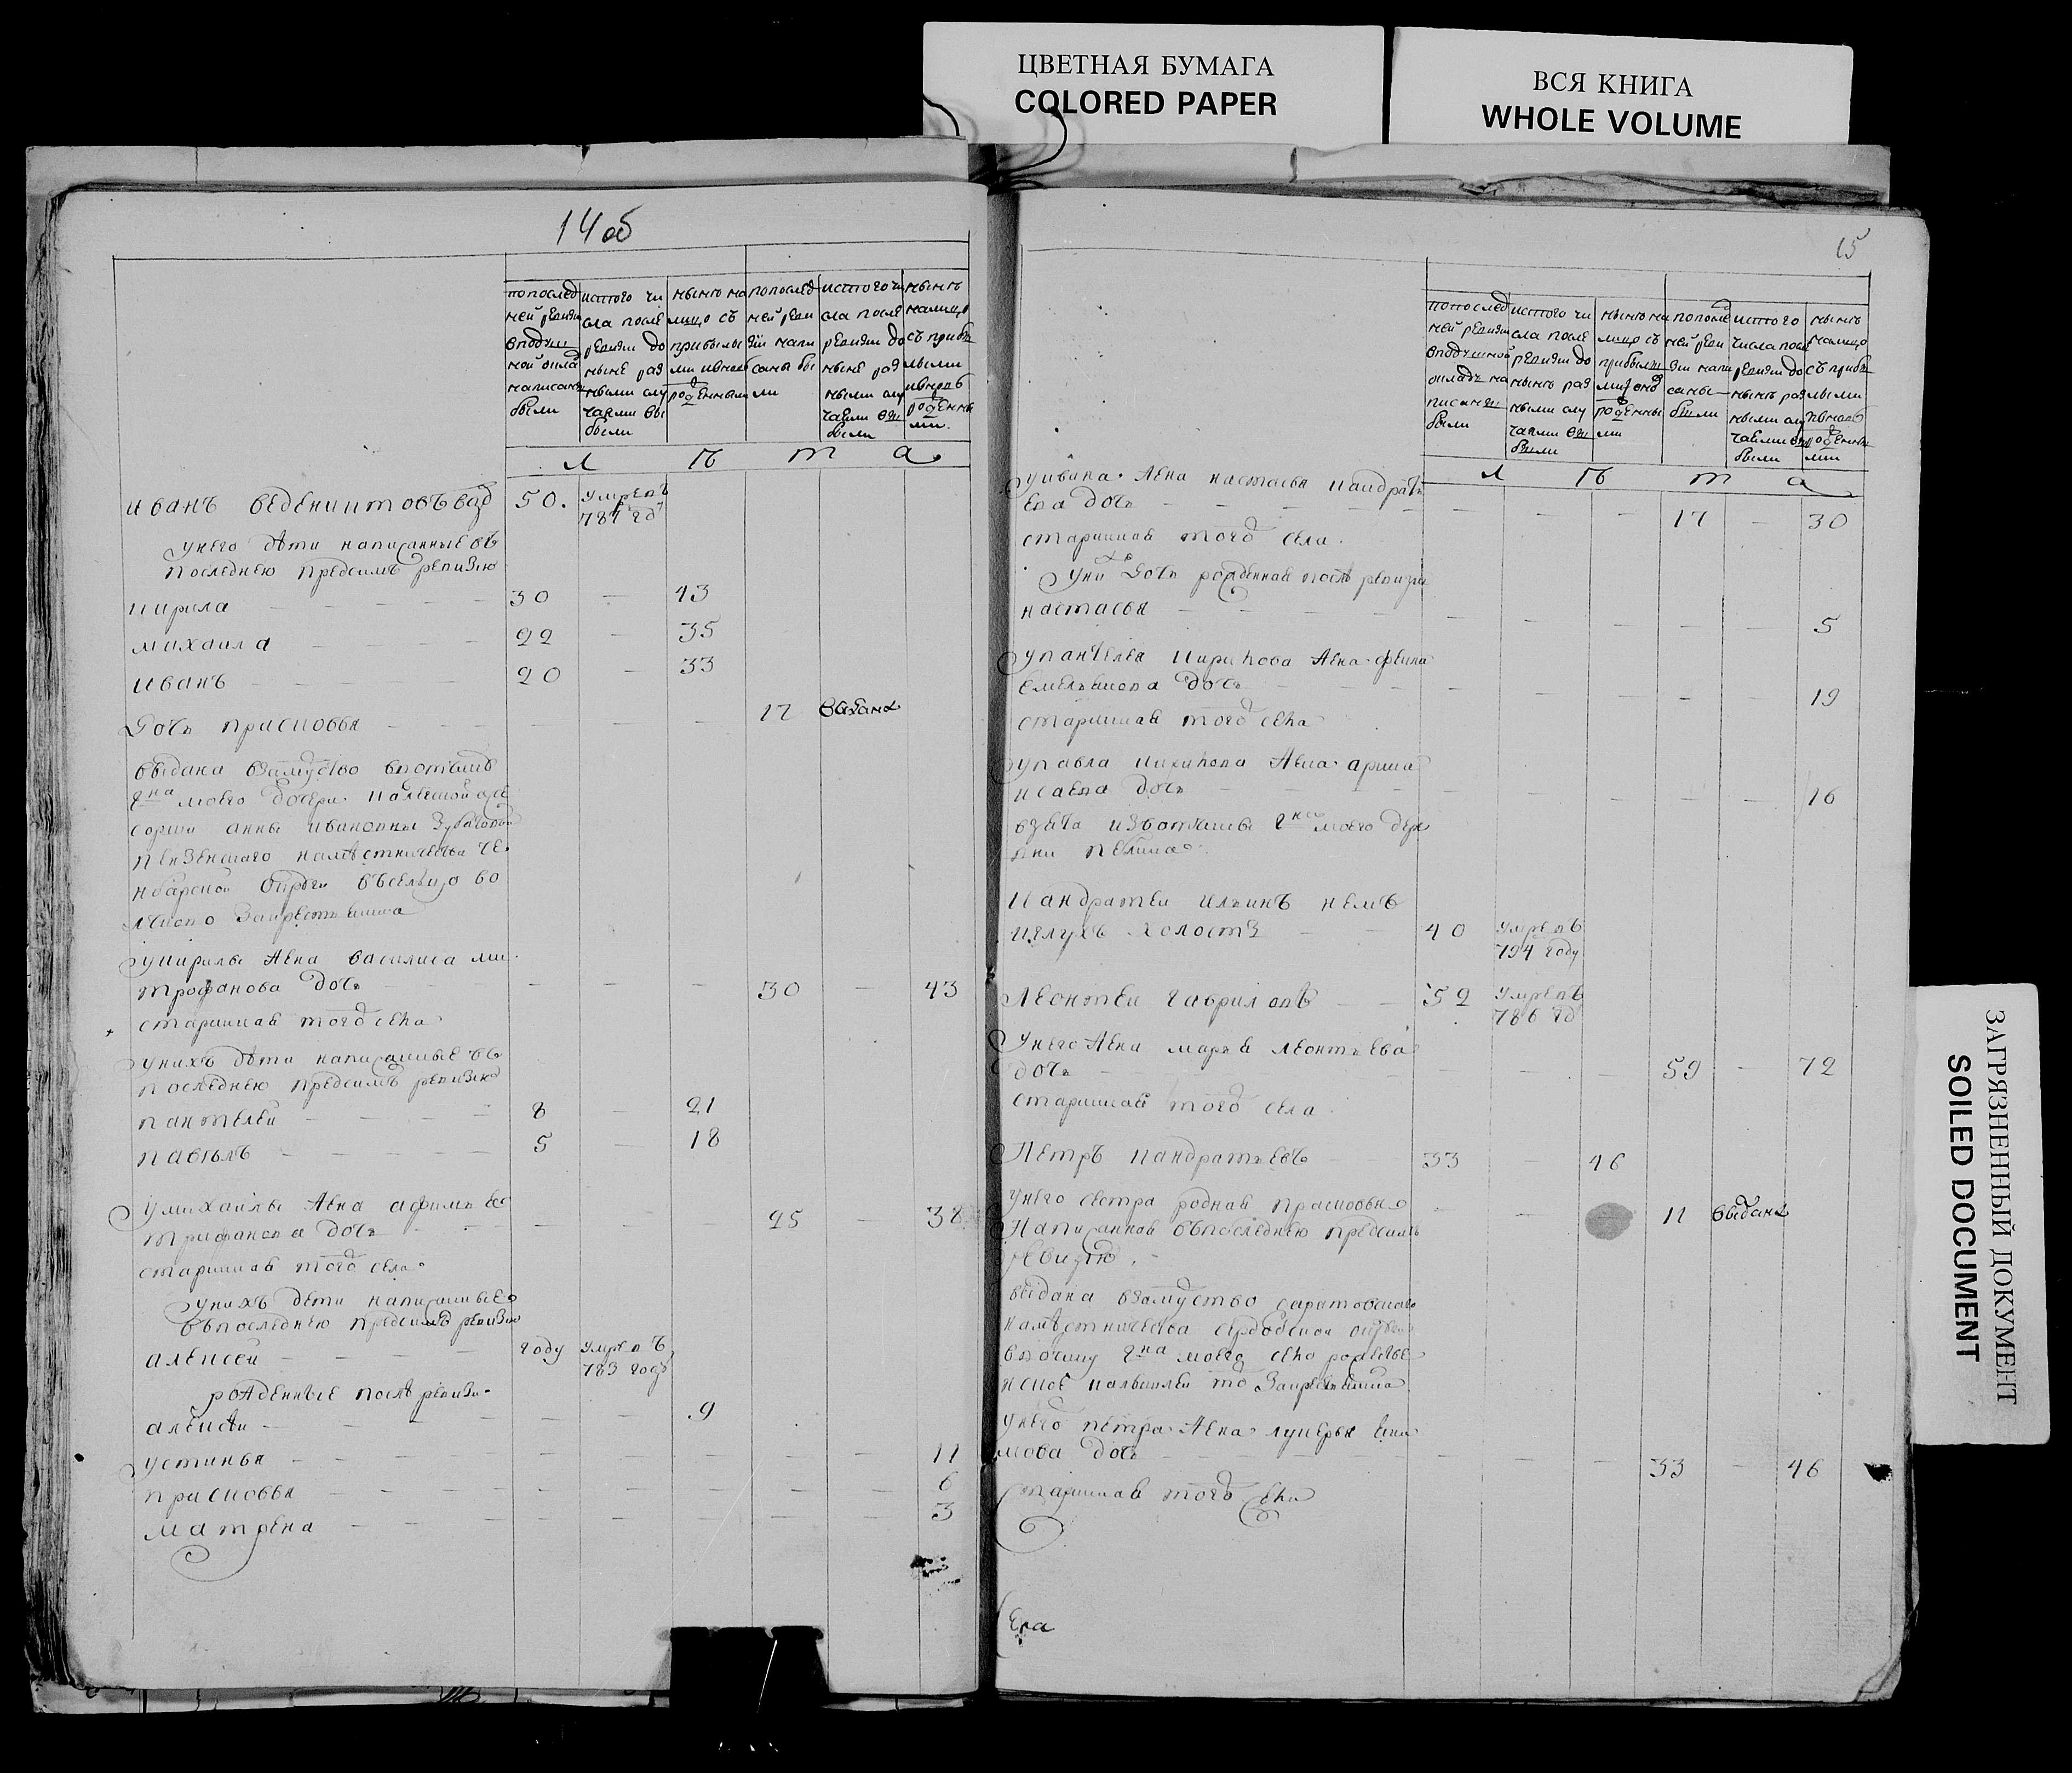 ЦВЕТНАЯ БУМАГА
COLORED PAPER
ВСЯ КНИГА
WHOLE VOLUME
14 об
попослед
ней ревизи
вподуш
ной окла
написаны
были
истого чи
сла после
ревизи до
ныне раз
ными слу
чаями вы
были
ныне на
лицо съ
прибылы
ми ивновь
рожденными
попослед
ней реви
зіи напи
саны бы
ли
истого чи
сла после
ревизи до
ныне раз
ными слу
чаями вы
были
нынѣ
налицо
съ прибы
лыми
ивновь
рожденны
ми
л ѣ т а
иванъ веденихтовъ вдо 50. умрепъ
787 год
унего дѣти написанные въ
последнею предсимъ ревизию
кирила 30 43
михаила 22 35
иванъ 20 33
Дочь прасковья 17 выдана
выдана взамуство вотчинѣ
гна моего дочери
анны ивановны
пензенскаго наместничества че
нбарской округи
укирилы жена василиса ми
трофанова дочь 30 43
старинная тогож села
унихъ дѣти написанные въ
последнею предсимъ ревизию
пантелей 8 21
павелъ 5 18
умихаилы жена афимья
трифанова дочь 25 38
старинная тогож села
унихъ дети написанные
впоследнею предсимъ ревизию
алексей году умрепъ
783 году
рожденные послѣ ревизи
алексей 9
устинья 11
прасковья 6
матрена 3
15
попослед
ней ревизи
вподушной
окладъ на
писаны
были
истого чи
сла после
ревизи до
нынѣ раз
ными слу
чаями вы
были
нынѣ на
лицо съ
прибылы
ми ивнов
рожденны
ми
попослед
ней реви
зіи напи
саны
были
истого
числа после
ревизи до
нынѣ раз
ными слу
чаями вы
были
нынѣ
налицо
съ прибы
лыми
ивновь
рожденны
ми
л ѣ т а
уивана жена настасья кандрать
ева дочь 17 30
старинная тогож села
уни хъ дочь рожденная послѣ ревизи
настасья 5
упантелея кирилова жена фекла
емельянова дочь 19
старинная тогож села
упавла кирилова жена арина
исаева дочь 16
взята извотчины гна моего дере
вни
кандратей илинъ немъ
иглухъ холостъ 40 умрепъ
794 году
Леонтей гавриловъ 59 умрепъ
786 год
Унего жена марья леонтьева
дочь 59 72
старинная тогож села
Петръ кандратьевъ 33 46
унего сестра родная прасковья 11 выдана
Написанная въпоследнею предсимъ
ревизию
выдана взамуство саратовскаго
наместничества сердобской округи
вотчину гна моего село
унего петра жена лукерья
мова дочь 33 46
старинная тогож села
Ера
ЗАГРЯЗНЕННЫЙ ДОКУМЕНТ
SOILED DOCUMENT